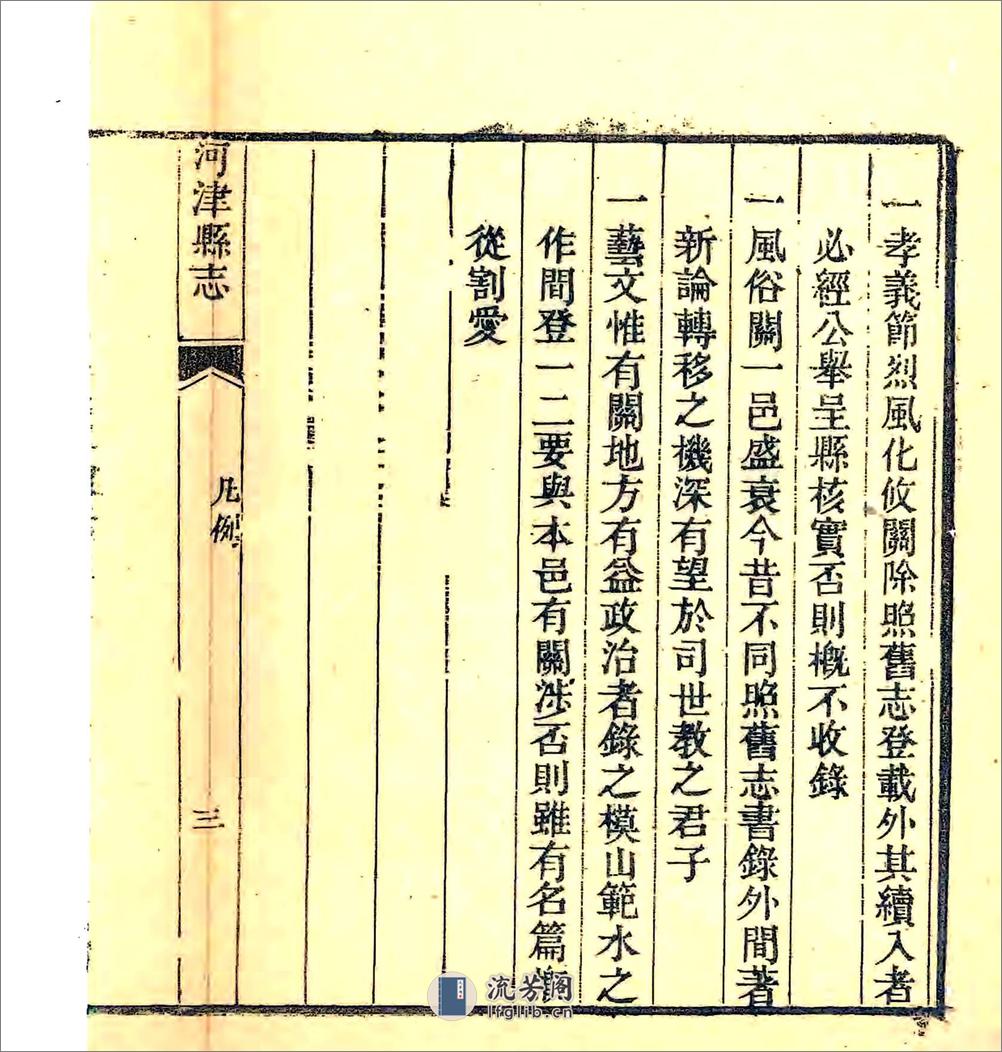 一孝義節烈風化攸關除照舊志登載外其續入者
必經公舉呈縣核實否則槪不收錄
一風俗關一邑盛衰今昔不同照舊志書錄外間著
新論轉移之機深有望於司世敎之君子
一藝文惟有關地方有益政治者錄之模山範水之
作間登一二要與本邑有關涉否則雖有名篇槪
從割愛
河津縣志
凡例
三
流芳閣
lfglib.cn